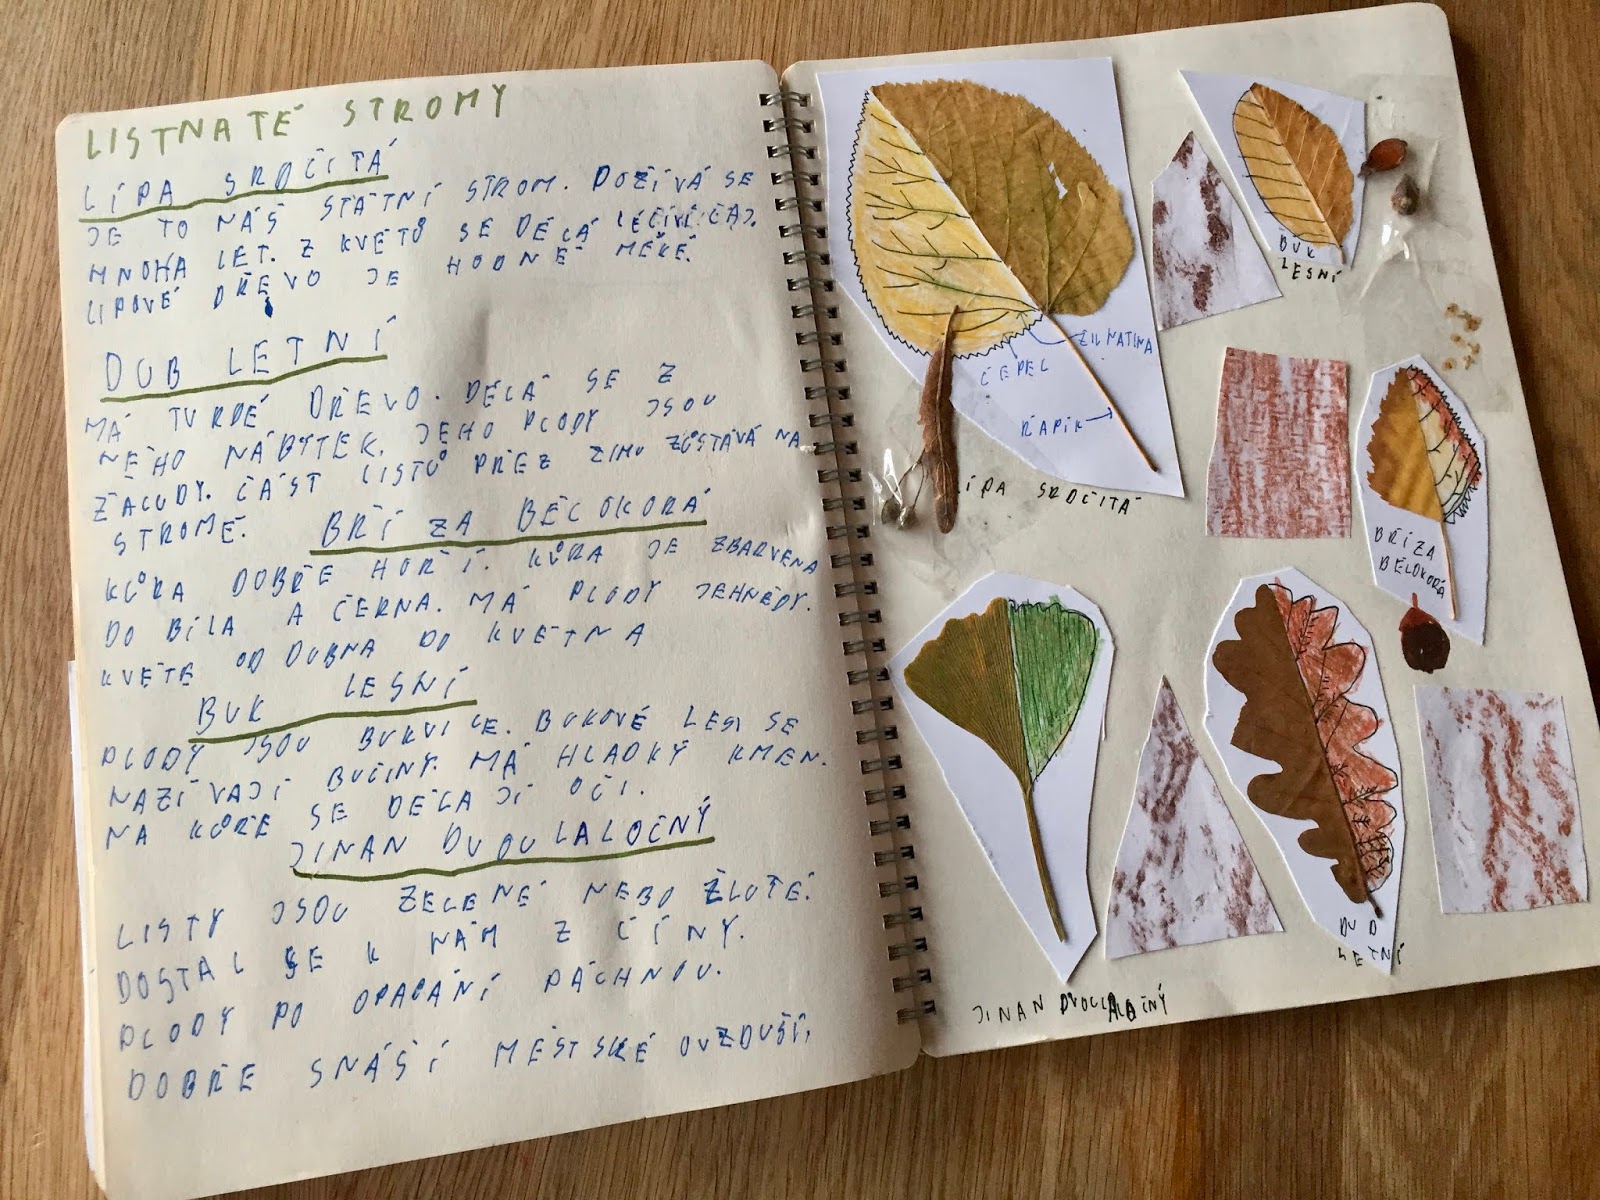 LISTNATÉ STROMY
LÍPA SRDČITÁ
JE TO NÁŠ STÁTNÍ STROM. DOŽÍVÁ SE
MNOHA LET. Z KVĚTŮ SE DĚLÁ LÉČIVÍ ČAJ.
LIPOVÉ DŘEVO JE HODNĚ MĚKÉ.
DUB LETNÍ
MÁ TVRDÉ DŘEVO. DĚLÁ SE Z
NĚHO NÁBYTEK. JEHO PLODY JSOU
ŽALUDY. ČÁST LISTŮ PŘEZ ZIMU ZŮSTÁVÁ NA
STROMĚ.
BŘÍZA BĚLOKORÁ
KŮRA DOBŘE HOŘÍ. KŮRA JE ZBARVENA
DO BÍLA A ČERNA. MÁ PLODY JEHNĚDY.
KVETE OD DUBNA DO KVĚTNA
BUK LESNÍ
PLODY JSOU BUKVICE. BUKOVÉ LESI SE
NAZÍVAJÍ BUČINY. MÁ HLADKÝ KMEN.
NA KŮŘE SE DĚLAJÍ OČI.
JINAN DVOULALOČNÝ
LISTY JSOU ZELENÉ NEBO ŽLUTÉ.
DOSTAL SE K NÁM Z ČÍNY.
PLODY PO OPADÁNÍ PÁCHNOU.
DOBŘE SNÁŠÍ MĚSTSKÉ OVZDUŠÍ.
ŽILNATINA
ČEPEL
ŘAPÍK
LÍPA SRDČITÁ
BUK
LESNÍ
BŘÍZA
BĚLOKORÁ
DUB
LETNÍ
JINAN DVOULALOČNÝ